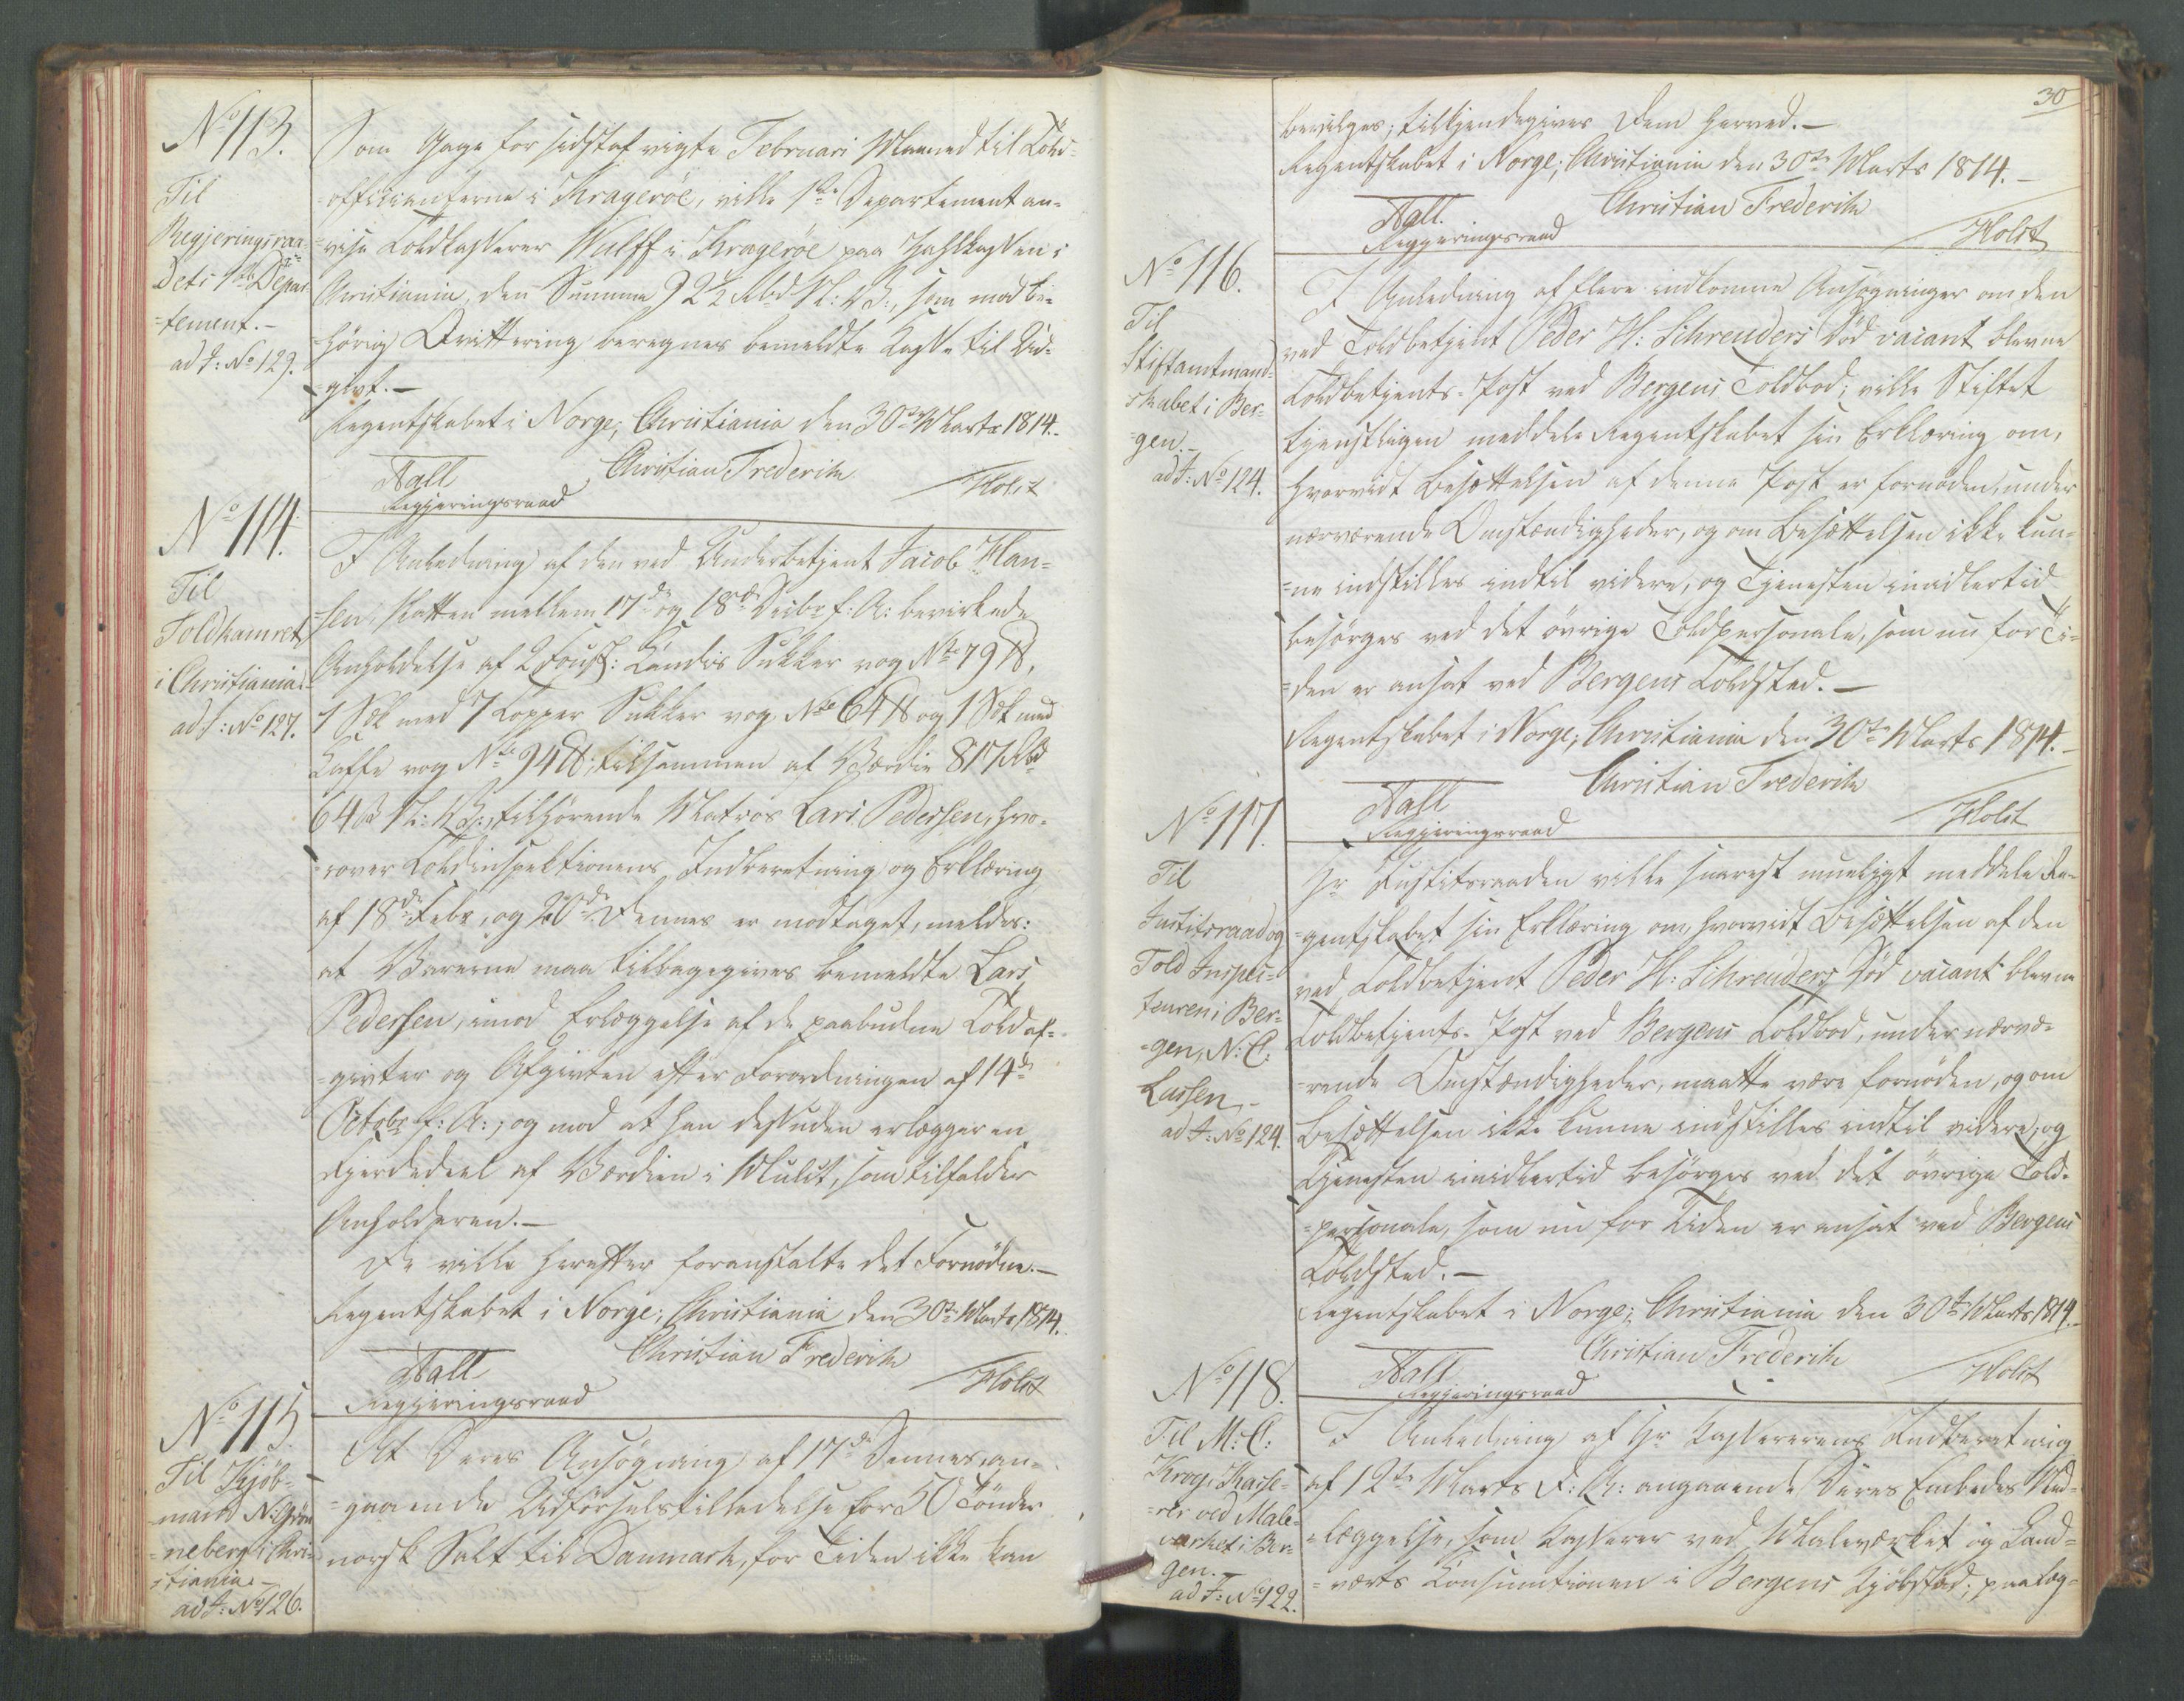 No 113.
Til
Regjeringsraa-
dets 1ste Depar-
=tement.-
ad J: No 129.
Som Gage for sidstafvigte Februari Maaned til Told-
=officianterne i Kragerøe, ville 1ste Departement an-
=vise Toldkasserer Wulff i Kragerøe paa Zahlkassen i
Christiania, den Summa 92½ Rbd N: V:, som mod be-
=hørig Qvittering beregnes bemeldte Kasse til Ud-
=givt.-
Regentskabet i Norge; Christiania den 30te Marts 1814.
Christian Frederik
Aall
Regjeringsraad
Holst
No 114.
Til
Toldkamret
i Christiania.
ad J: No 127.
I Anledning af den ved Underbetjent Jacob Han-
=sen, Natten mellem 17de og 18de Decbr f: A: bevirkede
Anholdelse af 2 Foust: Kandis Sukker vog Nto 79 ℔,
1 Sæk med 7 Topper Sukker vog Nto 64 ℔ og 1 Sæk med
Kaffe vog Nto 94 ℔, tilsammen af Værdie 817 Rbd
64 ß N: V:, tilhørende Matros Lars Pedersen, hvo-
=rover Toldinspektionens Indberetning og Erklæring
af 18de Febr, og 20de dennes er modtaget, meldes:
at Varerne maa tilbagegives bemeldte Lars
Pedersen, imod Erlæggelse af de paabudne Toldaf-
=givter og Afgivten efter Forordningen af 14de
Octobr f: A:; og mod at han desuden erlægger en
Fjerdedeel af Værdien i Mulct, som tilfalder
Anholderen.-
De ville herefter foranstalte det Fornødne.-
Regentskabet i Norge; Christiania den 30te Marts 1814.
Christian Frederik
Aall
Regjeringsraad
Holst
No 115.
Til Kjöb-
mand N: Grøn
=neberg i Chri-
stiania.-
ad J: No 126.
At Deres Ansøgning af 17de Dennes, an-
=gaaende Udførselstilladelse for 50 Tønder
norsk Salt til Danmark, for Tiden ikke kan
30
bevilges; tilkjendegives Dem herved.-
Regentskabet i Norge; Christiania den 30te Marts 1814.-
Christian Frederik
Aall
Regjeringsraad
Holst
No 116.
Til
Stiftamtmand-
skabet i Ber-
=gen.-
ad J: No 124.
I Anledning af flere indkomne Ansøgninger om den
ved Toldbetjent Peder H: Schreuders Død vacant blevne
Toldbetjents-Post ved Bergens Toldbod; ville Stiftet
tjenstligen meddele Regentskabet sin Erklæring om,
hvorvidt Besættelsen af denne Post er fornøden, under
nærværende Omstændigheder, og om Besættelsen ikke kun-
=ne indstilles indtil videre, og Tjenesten imidlertid
besørges ved det øvrige Toldpersonale, som nu for Ti-
=den er ansat ved Bergens Toldsted.-
Regentskabet i Norge; Christiania den 30te Marts 1814.-
Christian Frederik
Aall
Regjeringsraad
Holst
No 117.
Til
Justitsraad og
Told Inspec-
teuren i Ber-
=gen, N: C:
Lassen.-
ad J: No 124.
Hr Justitsraaden ville snarest mueligst meddele Re-
=gentskabet sin Erklæring om, hvorvidt Besættelsen af den
ved Toldbetjent Peder H: Schreuders Død vacant blevne
Toldbetjents-Post ved Bergens Toldbod, under nærvæ-
=rende Omstændigheder, maatte være fornøden, og om
Besættelsen ikke kunne indstilles indtil videre, og
Tjenesten imidlertid besørges ved det øvrige Told-
=personale, som nu for Tiden er ansat ved Bergens
Toldsted.-
Regentskabet i Norge; Christiania den 30te Marts 1814.-
Christian Frederik
Aall
Regjeringsraad
Holst
No 118.
Til M: C:
Krog, Kasse-
=rer ved Male-
værket i Ber-
gen.-
ad J: No 122.
I Anledning af Hr Kassererens Indberetning
af 12te Marts d: A: angaaende Deres Embedes Ned-
=læggelse, som Kasserer ved Maleværket og Land-
=værts Consumtionen i Bergens Kjøbsted; paalæg-